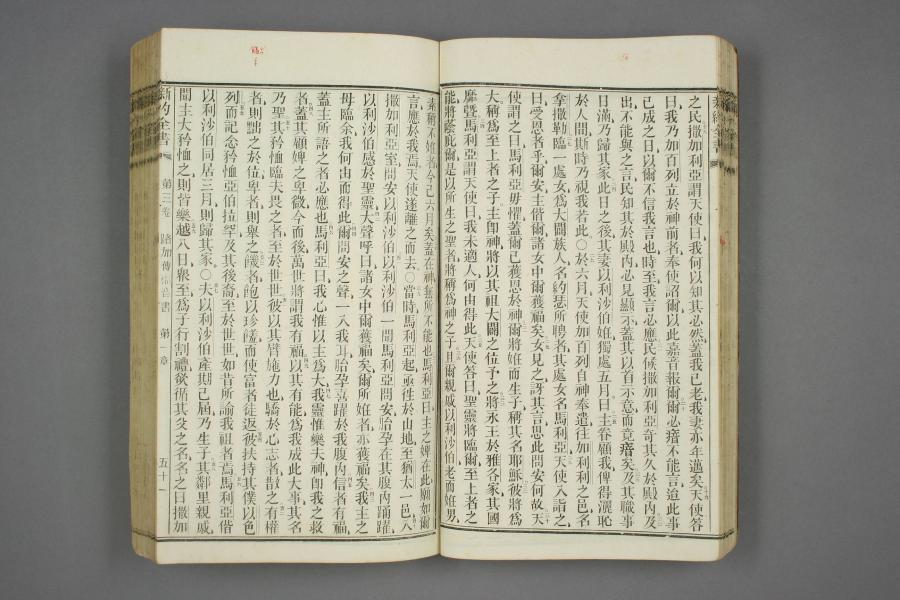 之民撒加利亞謂天使曰我何以知其必然蓋我已老我妻亦年邁矣天使答
曰我乃加百列立於神前者奉使詔爾以此嘉音報爾爾必瘖不能言迨此事
已成之日以爾不信我言也時至我言必應民候撒加利亞奇其久於殿內及
出不能與之言民知其於殿內必見顯示蓋其以首示意而竟瘖矣及其職事
日滿乃歸其家此日之後其妻以利沙伯妊獨處五月曰主眷顧我俾得灑恥
於人間斯時乃視我若此○於六月天使加百列自神奉遣往加利利之邑名
拿撒勒臨一處女為大闢族人名約瑟所聘者其處女名馬利亞天使入詣之
曰受恩者乎爾安主偕爾諸女中爾獲福矣女見之訝其言思此問安何故天
使謂之曰馬利亞毋懼蓋爾已獲恩於神爾將妊而生子稱其名耶穌彼將為
大稱為至上者之子主即神將以其祖大闢之位予之將永王於雅各家其國
靡曁馬利亞謂天使曰我未適人何由得此天使答曰聖靈將臨爾至上者之
能將蔭庇爾是以所生之聖者將稱為神之子且爾親戚以利沙伯老而妊男
素稱不妊者今已六月矣蓋在神無所不能也馬利亞曰主之婢在此願如爾
言應於我焉天使遂離之而去○當時馬利亞起亟往於山地至猶太一邑入
撒加利亞室問安以利沙伯以利沙伯一聞馬利亞問安胎孕在其腹內踊躍
以利沙伯感於聖靈大聲呼曰諸女中爾獲福矣爾所妊者亦獲福矣我主之
母臨余我何由而得此爾問安之聲一入我耳胎孕喜躍於我腹內信者有福
蓋主所語之者必應也馬利亞曰我心惟以主為大我靈惟樂夫神即我之救
者蓋其顧婢之卑微今而後萬世將謂我有福以其有能為我成此大事其名
乃聖其矜恤臨夫畏之者至於世世彼以其臂施力也驕於心志者散之有權
者則黜之於位卑者則舉之饑者飽以珍饈而使富者徒返彼扶持其僕以色
列而記念矜恤亞伯拉罕及其後裔至於世世如昔所諭我祖者焉馬利亞偕
以利沙伯同居三月則歸其家○夫以利沙伯產期已屆乃生子其鄰里親戚
聞主大矜恤之則皆樂越八日衆至為子行割禮欲循其父之名名之曰撒加
新約全書 第三卷 路加傳福音書 第一章 五十一